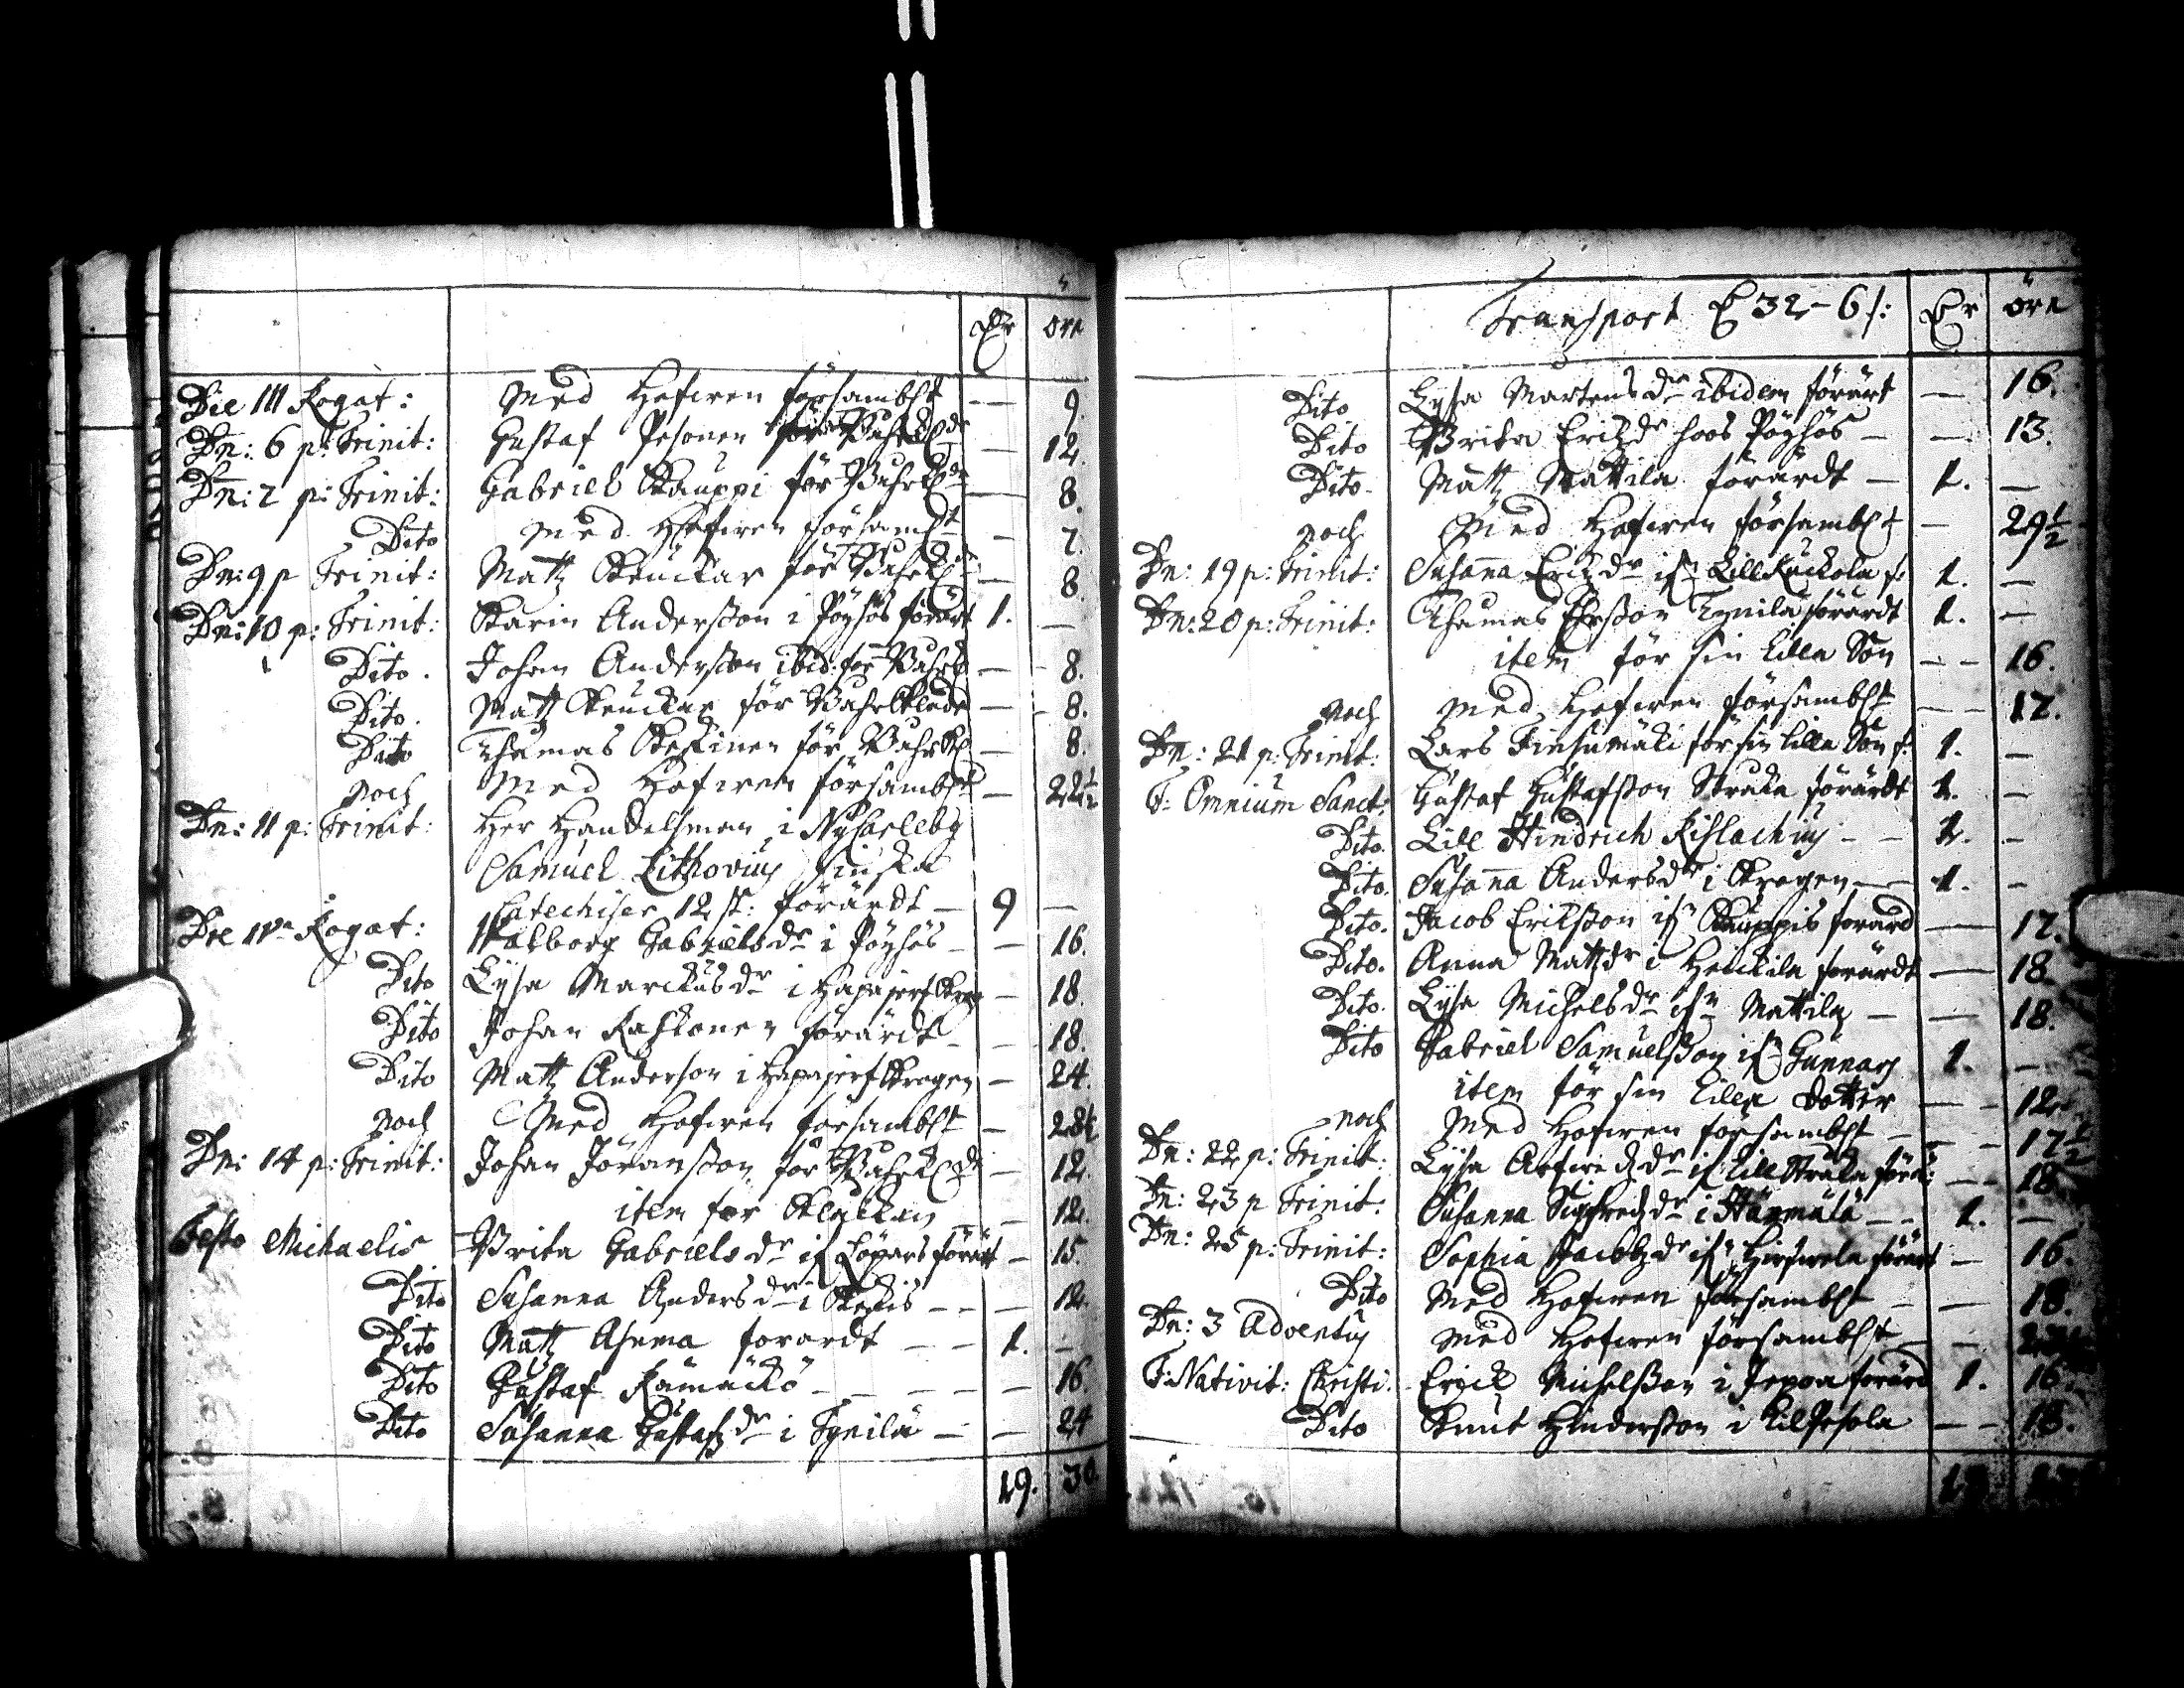 Dr öre
Die III Rogat: Med Hofwen försambt — 9.
Dn: 6 p: Trinit: Gustaf Pesonen för — 12.
Dn: 7 p: Trinit: Gabriel Kauppi för — 8.
Dito Med Hofwen försambt — 7.
Dn: 9 p Trinit: Matz Keuckar för — 8.
Dn: 10 p: Trinit: Karin Andersson i Pöyhös förärt 1. —
Dito. Johan Andersson ibid: för — 8.
Dito. Matz Keuckar för — 8.
Dito Thomas Keskinen för — 8.
noch Med Hofwen försambt — 22½
Dn: 11 p: Trinit: Her Handelsman i Nykarleby
Samuel Lithovius finska
Catechiser 12 st: förärdt — 9 —
Die IVa Rogat: Walborg Gabrielsdr i Pöyhös — — 16.
Dito Lysa Marckusdr i — 18.
Dito Johan förärdt — — 18.
Dito Matz Anderson i — 24.
noch Med Hofwen försambt — 28½
Dn: 14 p: Trinit: Johan Jöransson för — 12.
item for Klockan — 12.
Festo Michaelis Brita Gabrielsdr if Löpars förärt — 15.
Dito Susanna Andersdr i — — — 12.
Dito Matz Asuma forardt — — 1. —
Dito Gustaf Rämäckö — — — — 16.
Dito Susanna Gustafzdr i Tynilä — — 24
19. 30
Transport 32 - 6 /: Dr öre
Dito Lysa Martensdr ibidem förärt — 16.
Dito Brita Erichzdr hoos Pöyhös — — 13.
Dito. Matz Mattila förärdt — 1. —
noch Med Hofwen försambt — 29½
Dn: 19 p: Trinit: Susanna Erichzdr ifr Lill Kuckola f: 1. —
Dn: 20 p: Trinit: Thomas Tynilä förärdt 1. —
item för sin lilla Son — — 16.
noch med Hofwen försambt — — 17.
Dn: 21 p: Trinit: Lars Finsumäki för sin lilla Son f: 1. —
F: Omnium Sanct: Gustaf Gustafsson Straka förärdt 1. —
Dito. Lill Hindrich — — 2. —
Dito. Susanna Andersdr i — 1. —
Dito. Jacob Erikson ifr Kauppis förärd — 17.
Dito. Anna Matzdr i förärdt — 18
Dito. Lysa Michelsdr ifrn Mattila — — 18.
Dito Gabriel Samuelsson ifr Gunnars 1. —
item för sin lilla Dotter — — 12
noch Med Hofwen forsambt — — 17½
Dn: 22 p: Trinit: Lysa if: Lill Straka förä: — 18
Dn: 23 p Trinit: Susanna Sigfredzdr i Härmälä — — 1. —
Dn: 25 p: Trinit: Sophia Jacobzdr ifr förärt — 16.
Dito Med Hofwen försambt — — 18.
Dn: 3 Adventus Med Hofwen försambt —
F: Nativit: Christi. Erick Michelsson i Jepoa förärd 1. 16
Dito Knut Hinderson i Lill Pesola — — 18.